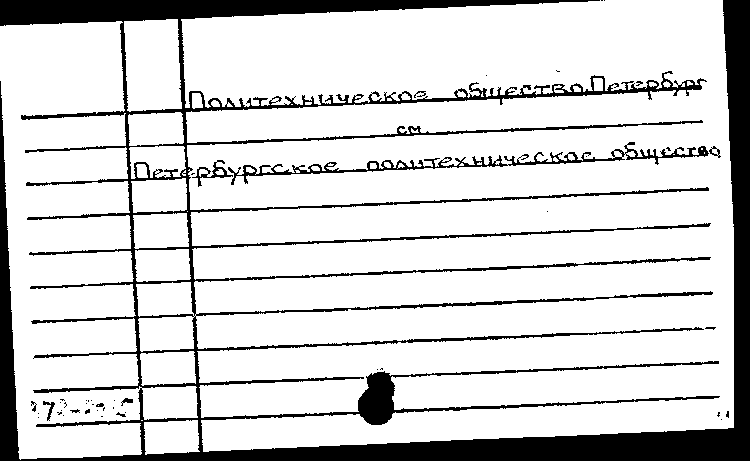 Политехническое общество, Петербург
см.
Петербургское политехническое общество